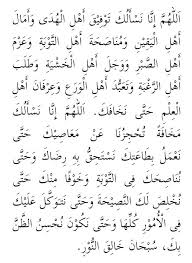 اَللّٰهُمَّ إِنَّا نَسْأَلُكَ تَوْفِيْقَ أَهْلِ الْهُدَى وَأَمَالَ
أَهْلِ الْيَقِيْنِ وَمُنَاصَحَةَ أَهْلِ التَّوْبَةِ وَعَزْمَ
أَهْلِ الصَّبْرِ وَوَجَلَ أَهْلِ الْخَشْيَةِ وَطَلَبَ
أَهْلِ الرَّغْبَةِ وَتَعَبُّدَ أَهْلِ الْوَرَعِ وَعِرْفَانَ أَهْلِ
الْعِلْمِ حَتَّى نَخَافَكَ. اَللّٰهُمَّ إِنَّا نَسْأَلُكَ
مَخَافَةً تُحْجِزُنَا عَنْ مَعَاصِيْكَ حَتَّى
نَعْمَلَ بِطَاعَتِكَ نَسْتَحِقُّ بِهِ رِضَاكَ وَحَتَّى
نُنَاصِحَكَ فِي التَّوْبَةِ وَخَوْفًا مِنْكَ حَتَّى
نُخْلِصَ لَكَ النَّصِيْحَةَ وَحَتَّى نَتَوَكَّلَ عَلَيْكَ
فِي الْأُمُوْرِ كُلِّهَا وَحَتَّى نَكُوْنَ نُحْسِنُ الظَّنَّ
بِكَ، سُبْحَانَ خَالِقِ النُّوْرِ.